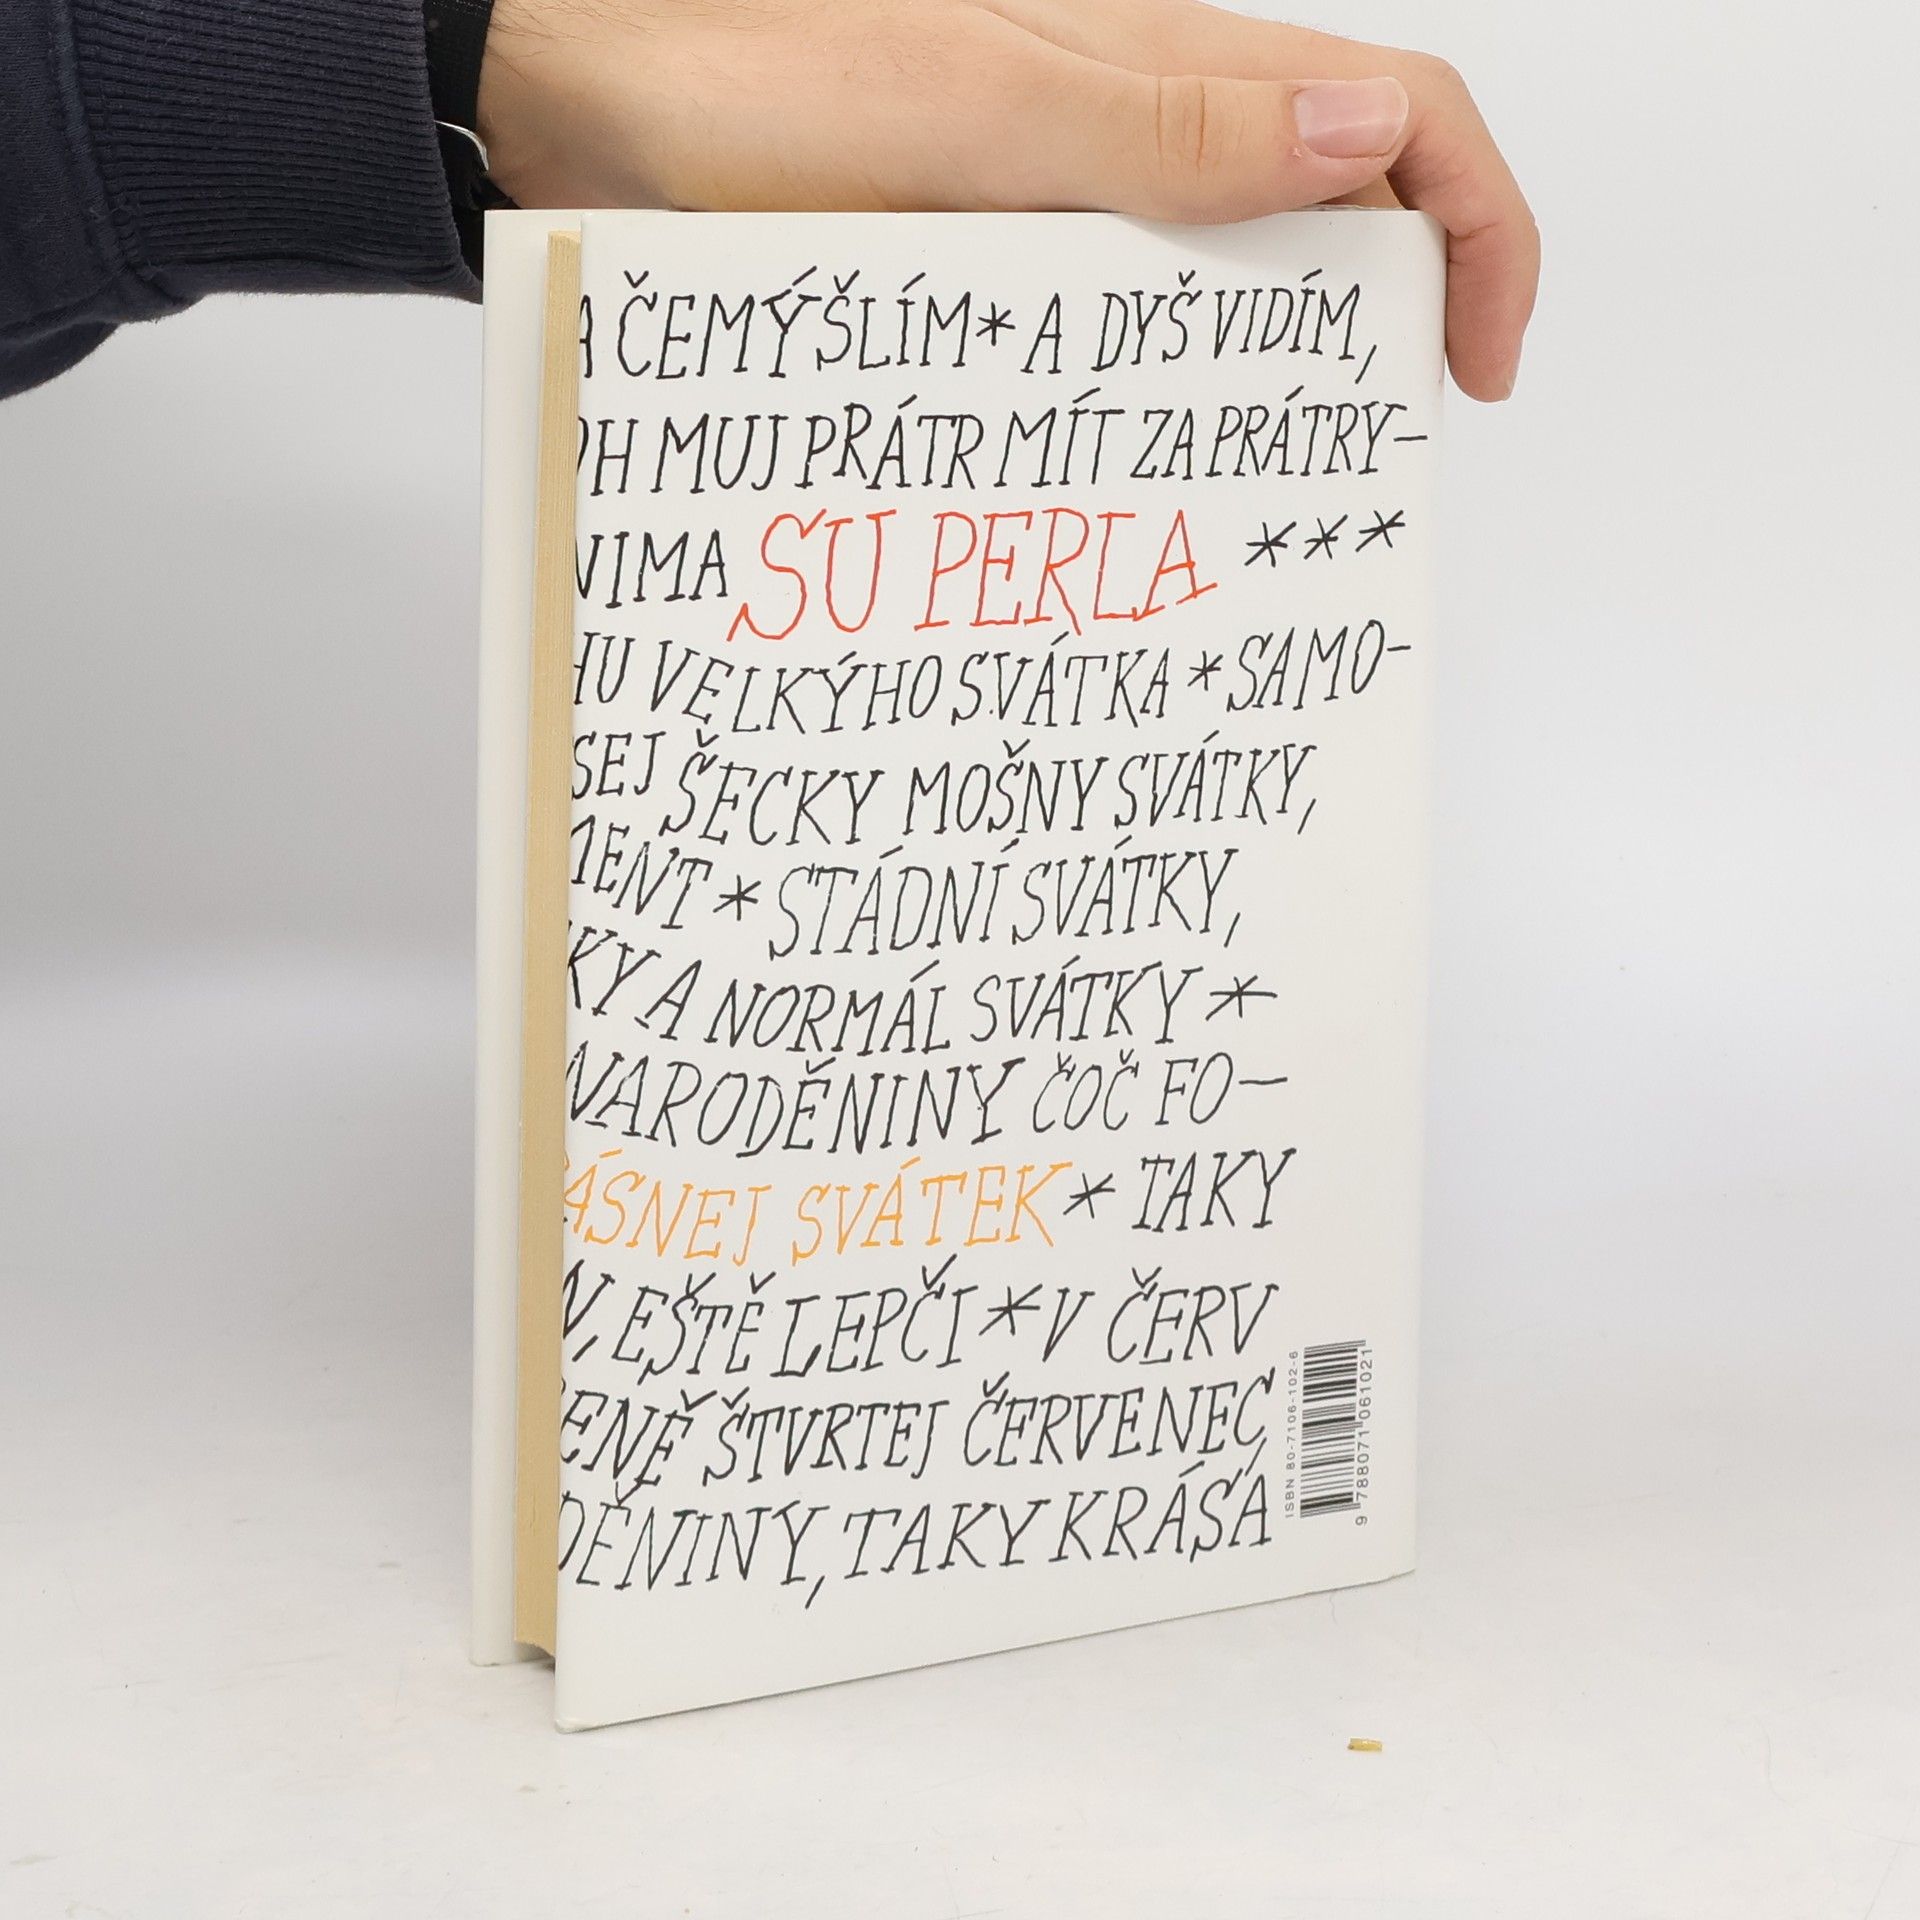 A ČEMÝŠLÍM * A DYŠ VIDÍM,
H MUJ PRÁTR MÍT ZA PRÁTRY–
NIMA SU PERLA * * *
HU VELKÝHO SVÁTKA * SAMO-
SEJ ŠECKY MOŠNY SVÁTKY,
MENT * STÁDNÍ SVÁTKY,
KY A NORMÁL SVÁTKY *
NARODĚNINY ČOČ FO–
ÁSNEJ SVÁTEK * TAKY
N, EŠTĚ LEPČI * V ČERV
ENĚ ŠTVRTEJ ČERVENEC,
DĚNINY, TAKY KRÁSA
ISBN 80-7106-102-6
9 788071 061021